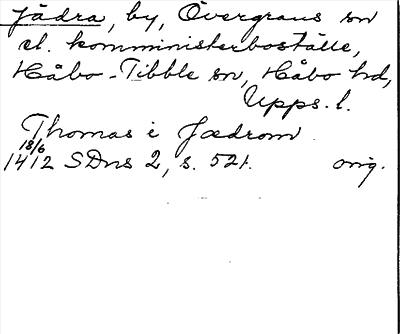 Jädra, by, Övergrans sn
el. komministerboställe,
Håbo-Tibble sn, Håbo hd,
Upps. l.
Thomas i Jædrom
18/6
1412 SDns 2, s. 521. orig.